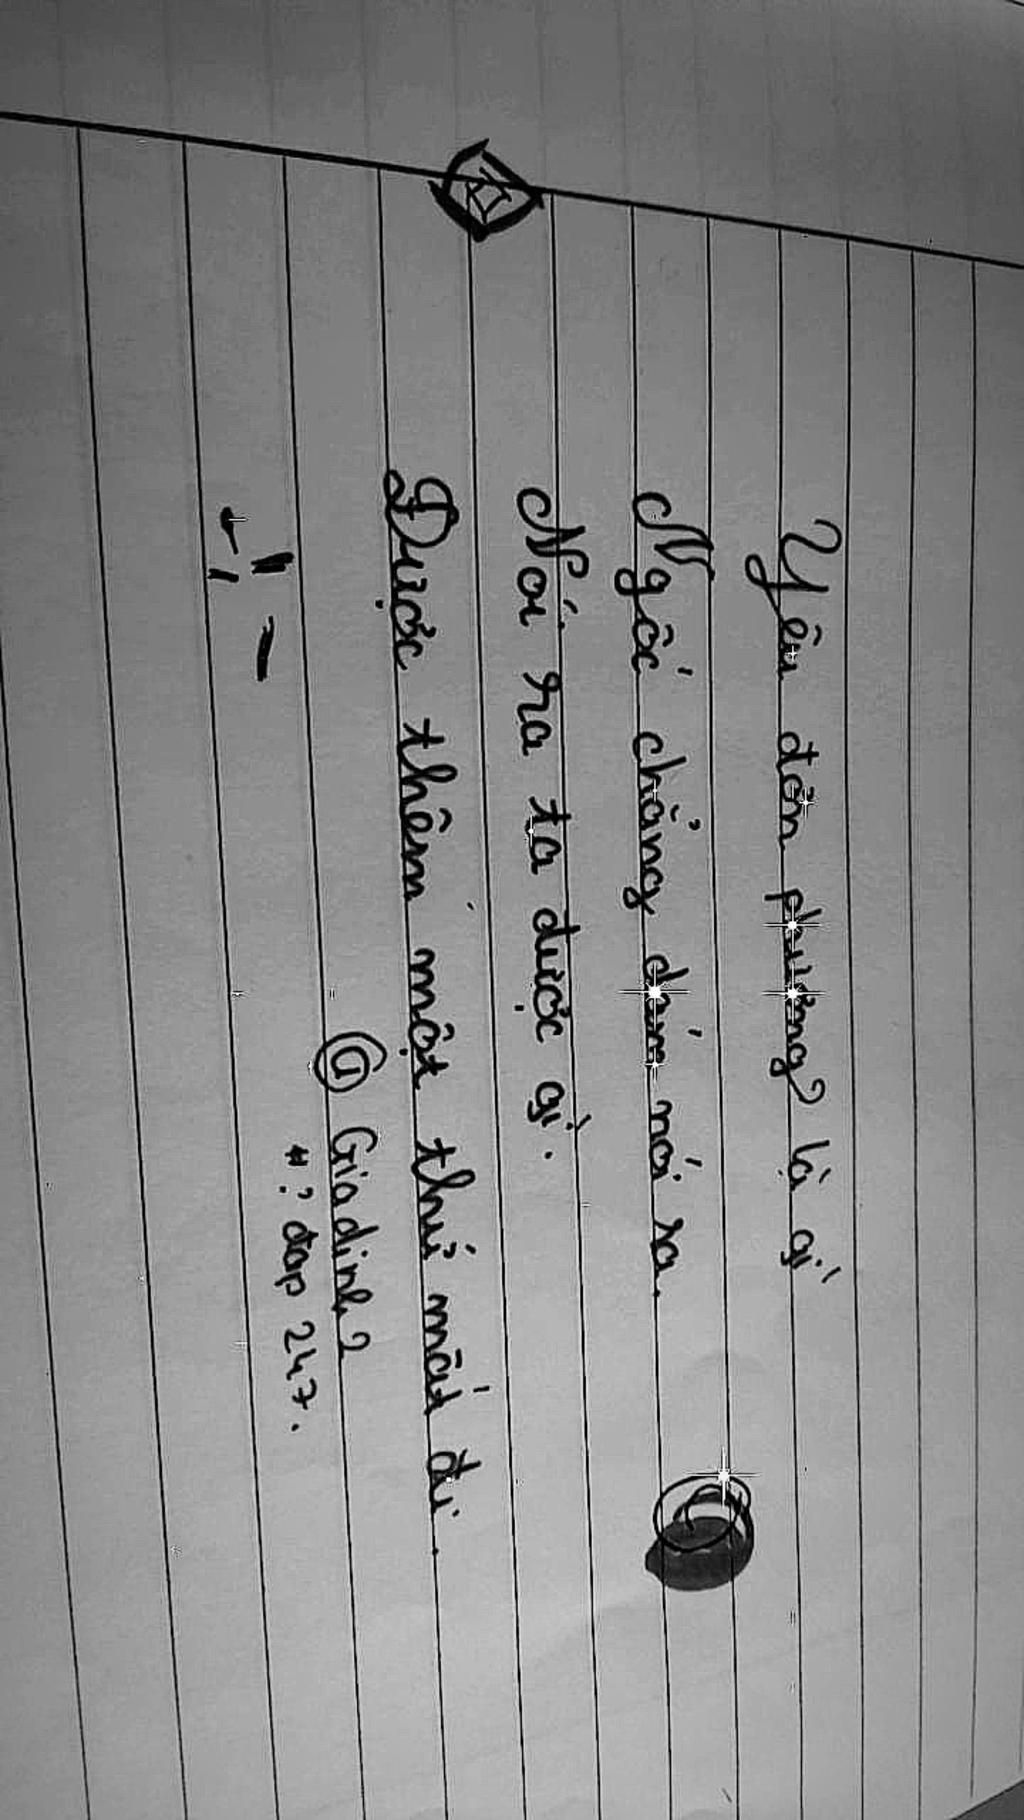 Yêu đơn phương? là gì
Ngốc chẳng dám nói ra.
Nói ra ta được gì.
Được thêm một thứ mất đi.
Giadinh2
#? đạp 247.